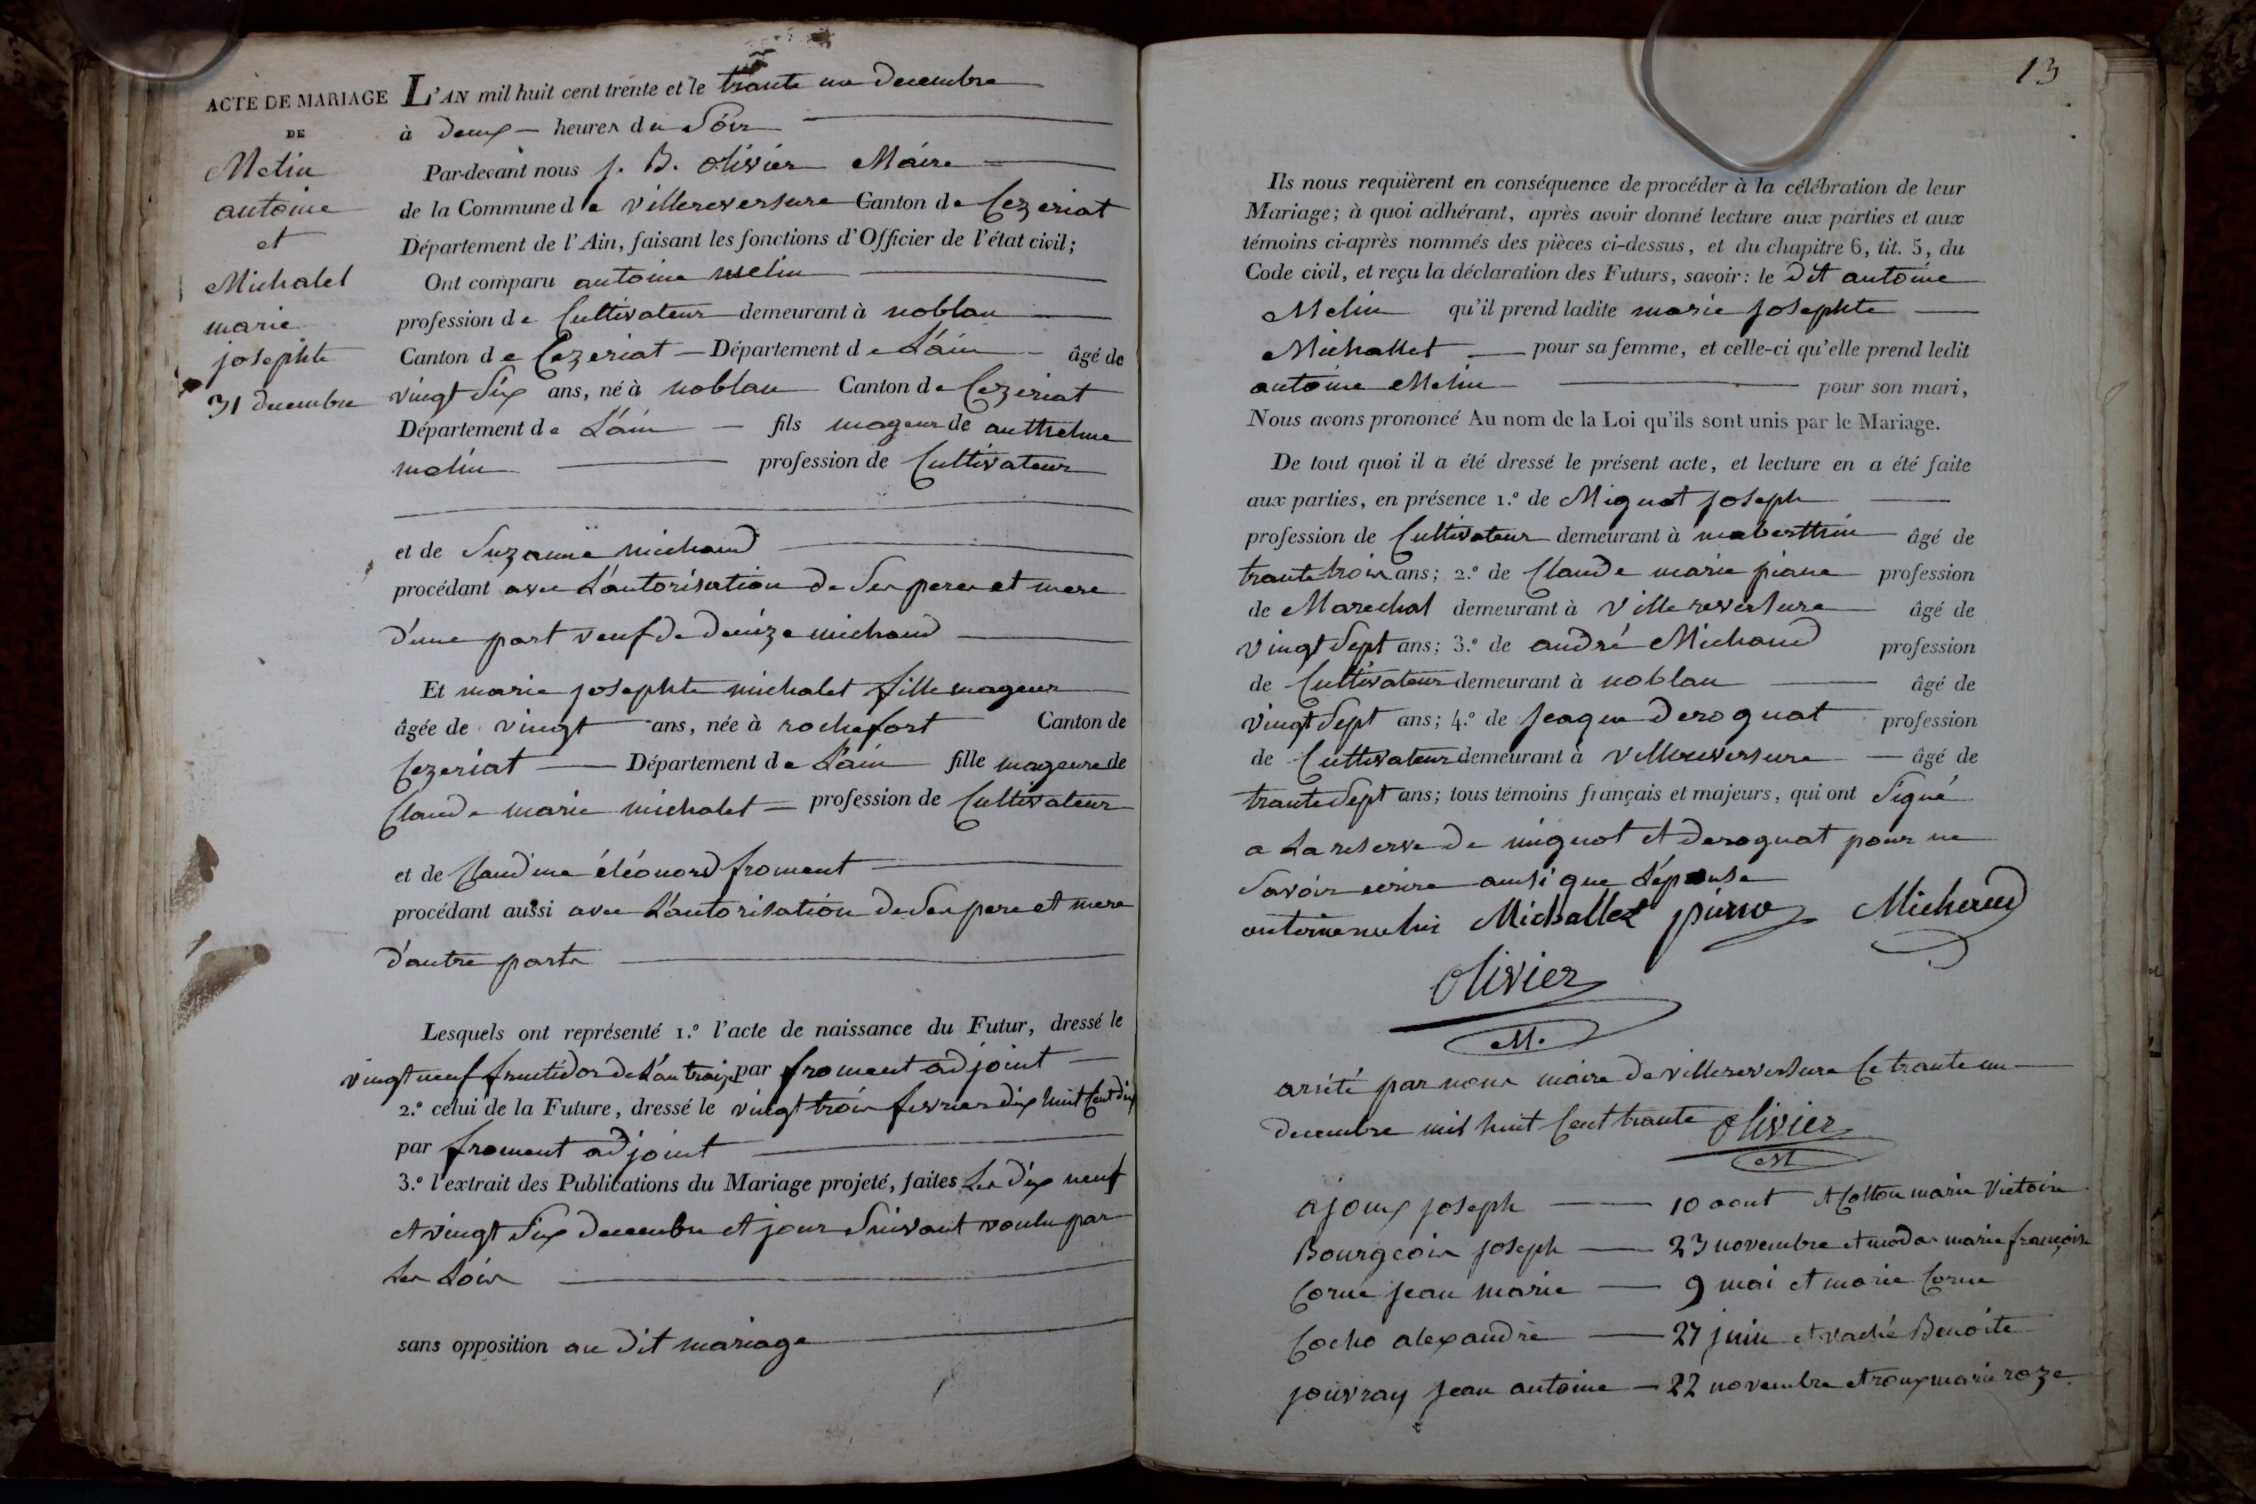 ACTE DE MARIAGE
DE
Melin
antoine
et
Michalet
marie
josephte
31 decembre
L'AN mil huit cent trente et le trante un decembre
à deux heures du Soir
Par-devant nous j. B. olivier Maire
de la Commune de villereversure Canton de Cezeriat
Département de l'Ain, faisant les fonctions d'Officier de l'état civil;
Ont comparu antoine melin
profession de Cultivateur demeurant à noblan
Canton de Cezeriat Département de L'ain âgé de
vingt Six ans, né à noblan Canton de Cezeriat
Département de L'ain fils mageur de anthelme
melin profession de Cultivateur
et de Suzanne michaud
procédant avec L'autorisation de Ses peres et mere
d'une part veuf de denize michaud
Et marie josephte michalet fille mageur
âgée de vingt ans, née à rochefort Canton de
Cezeriat Département de L'ain fille mageure de
Claude marie michalet profession de Cultivateur
et de Claudine éléonord froment
procédant aussi avec L'autorisation de Ses pere et mere
d'autre parts
Lesquels ont représenté 1.° l'acte de naissance du Futur, dressé le
vingt neuf fructidor de L'an traize par froment adjoint
2.° celui de la Future, dressé le vingt trois fevrier dix huit Cent dix
par froment adjoint
3.° l'extrait des Publications du Mariage projeté, faites Les dix neuf
et vingt Six decembre et jour Suivant voulu par
Les Lois
sans opposition au dit mariage
13
Ils nous requièrent en conséquence de procéder à la célébration de leur
Mariage; à quoi adhérant, après avoir donné lecture aux parties et aux
témoins ci-après nommés des pièces ci-dessus, et du chapitre 6, tit. 5, du
Code civil, et reçu la déclaration des Futurs, savoir: le dit antoine
Melin qu'il prend ladite marie josephte
Michallet pour sa femme, et celle-ci qu'elle prend ledit
antoine Melin pour son mari,
Nous avons prononcé Au nom de la Loi qu'ils sont unis par le Mariage.
De tout quoi il a été dressé le présent acte, et lecture en a été faite
aux parties, en présence 1.° de Mignot joseph
profession de Cultivateur demeurant à âgé de
trante trois ans; 2.° de Claude marie profession
de Marechal demeurant à Villereversure âgé de
vingt Sept ans; 3.° de andré Michaud profession
de Cultivateur demeurant à noblan âgé de
vingt Sept ans; 4.° de jeaque deroquat profession
de Cultivateur demeurant à villereversure âgé de
trante Sept ans; tous témoins français et majeurs, qui ont Signé
a La reserve de mignot et deroquat pour ne
Savoir ecrire ainsi que L'épouse
antoine melin Michallet Michaud
Olivier
M.
arrêté par nous maire de villereversure Ce trante un
decembre mil huit Cent trante Olivier
M
ajoux joseph 10 aout et Cotton marie Victoire
Bourgeois joseph 23 novembre et modas marie françoise
Corne jean marie 9 mai et marie Corne
Cocho alexandre 27 juin et vaché Benoite
jouvray jean antoine 22 novembre et roux marie roze